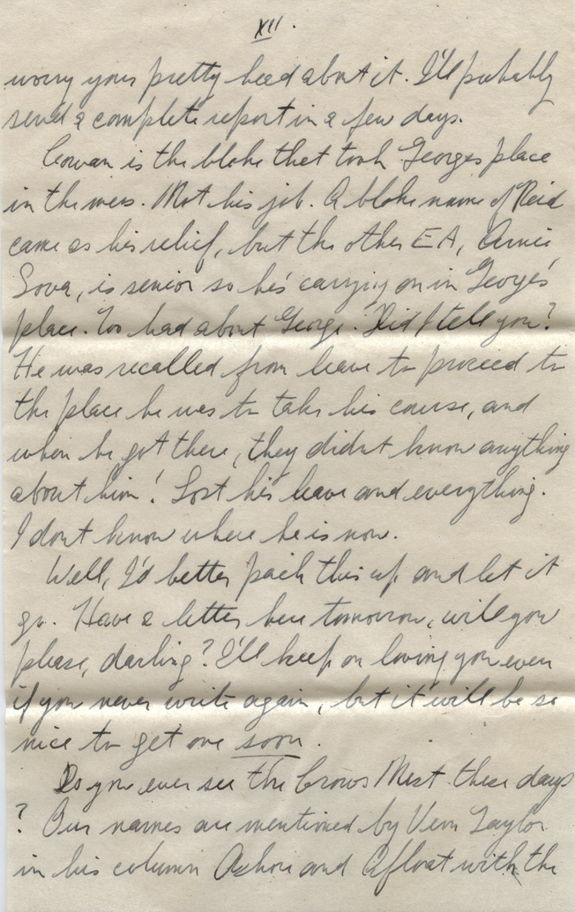 XII.
worry your pretty head about it. I'll probably
send a complete report in a few days.
Cowan is the bloke that took Georges place
in the mess. Not his job. A bloke name of Reid
came as his relief, but the other EA, Arnie
Sova, is senior so he's carrying on in George's
place. Too bad about George. Did I tell you?
He was recalled from leave to proceed to
the place he was to take his course, and
when he got there, they didnt know anything
about him! Lost his leave and everything.
I dont know where he is now.
Well, I'd better pack this up and let it
go. Have a letter here tomorrow, will you
please, darling? I'll keep on loving you even
if you never write again, but it will be so
nice to get one soon.
Do you ever see the Crows Nest these days
? Our names are mentioned by Vern Taylor
in his column Ashore and Afloat with the